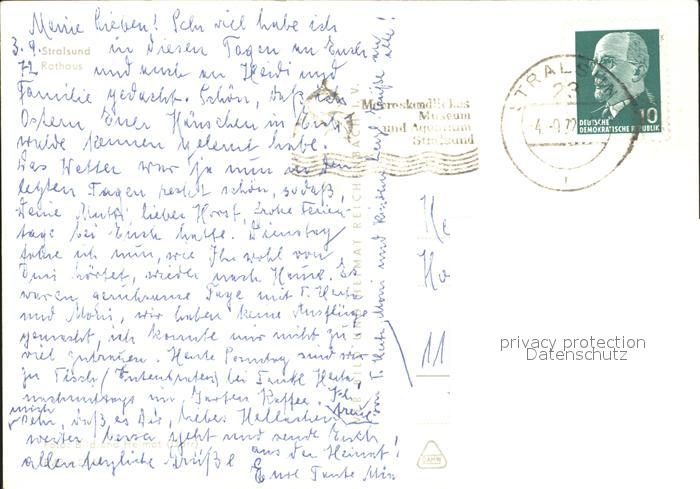 Meine Lieben! Sehr viel habe ich
3.9. Stralsund in diesen Tagen an Euch
72 Rathaus und auch an Heidi und
Familie gedacht. Schön, daß ich
Ostern Euer Häuschen in
kennen gelernt habe.
Das Wetter war ja nun in den
letzten Tagen recht schön, sodaß,
Deine Mutti, lieber Horst, frohe Ferien-
tage bei Euch hatte. Dienstag
fahre ich nun, wie Ihr wohl von
Omi hörtet, wieder nach Hause. Es
waren geruhsame Tage mit T.
und wir haben keine Ausflüge
gemacht, ich konnte mir nicht zu
viel zutrauen. Heute Sonntag sind wir
zu Tisch (Entenbraten) bei Tante
nachmittags im Garten Kaffee. Ich freue
mich sehr, daß es Dir, lieber
weiter besser geht und sende Euch
allen herzliche Grüße aus der Heimat!
Eure Tante
von T. und alle!
BILD UND HEIMAT REICHENBACH V.
Meereskundliches
Museum
und Aquarium
Stralsund
STRALSUND
23
-4.-9.72
10
DEUTSCHE
DEMOKRATISCHE REPUBLIK
He
Ha
11
privacy protection
Datenschutz